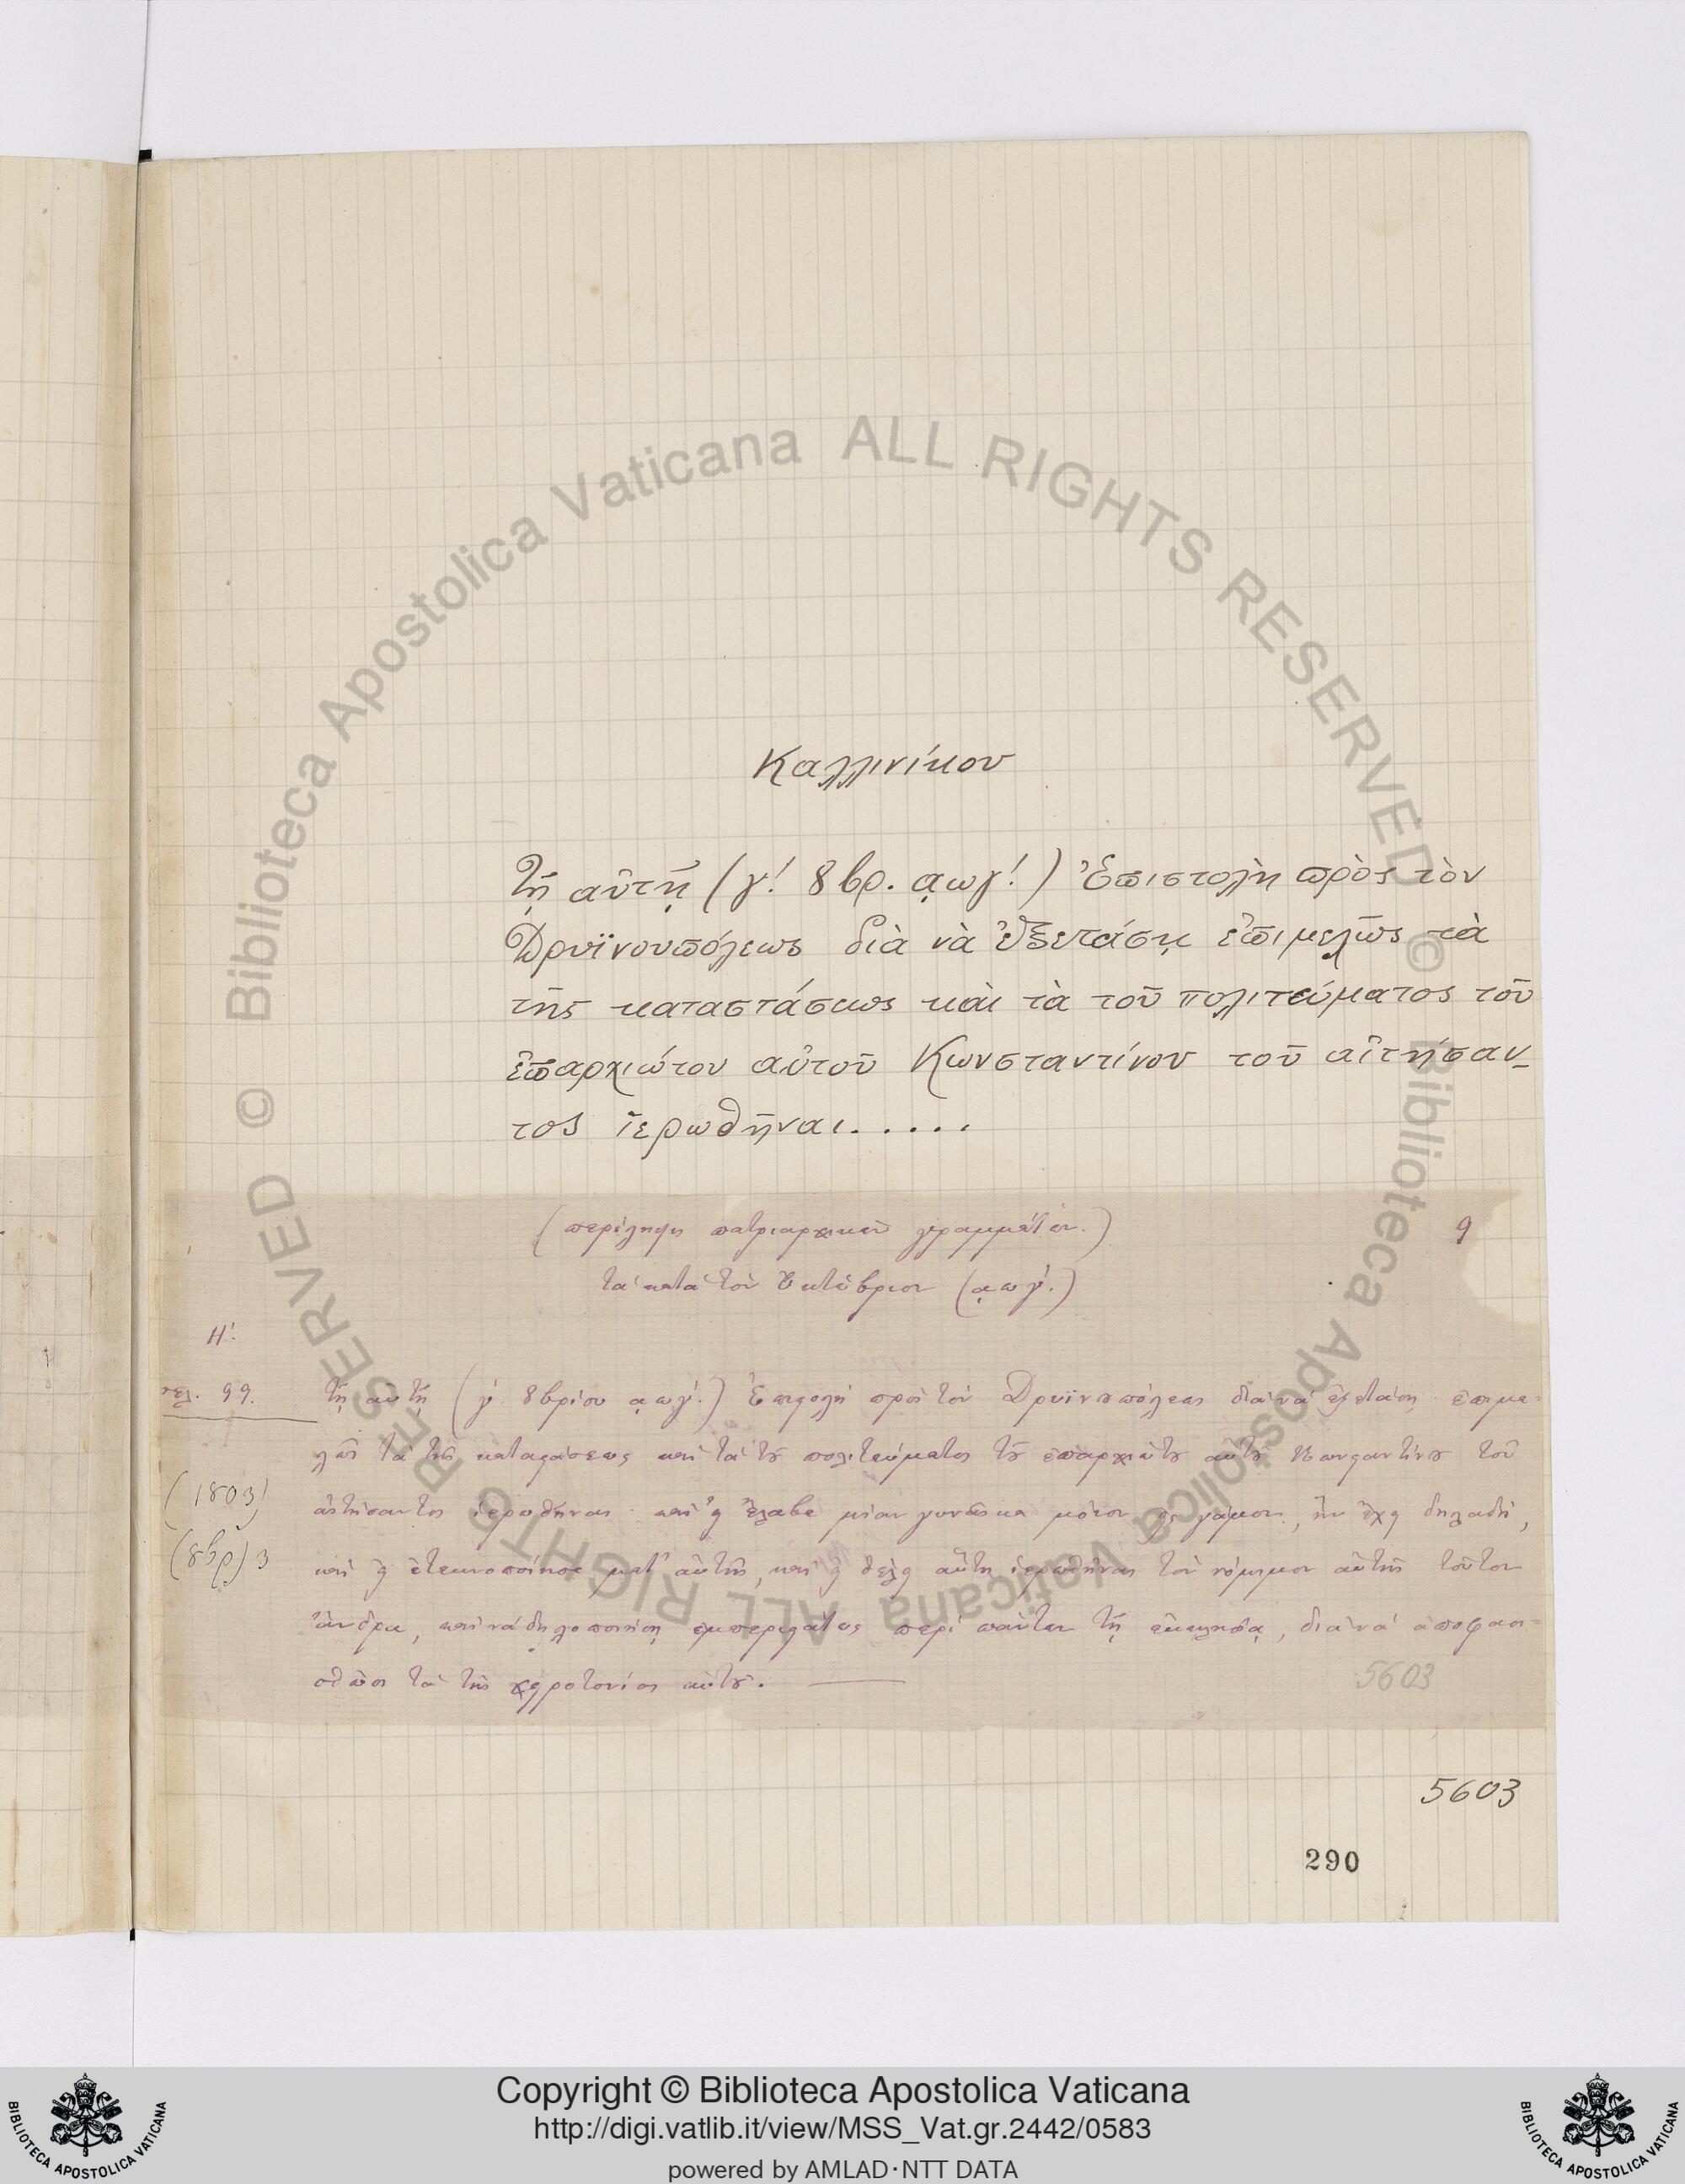 Καλλινίκου
Τῇ αὐτῇ (γ! 8βρ. ᾳωγ!) Ἐπιστολὴ πρὸς τὸν
Δρυϊνουπόλεως διὰ νὰ ἐξετάσῃ ἐπιμελῶς τὰ
τῆς καταστάσεως καὶ τὰ τοῦ πολιτεύματος τοῦ
ἐπαρχιώτου αὐτοῦ Κωνσταντίνου τοῦ αἰτήσαν_
τος ἱερωθῆναι.....
(περίληψη πατριαρχικῶν γραμμάτων.) 9
τὰ κατὰ τὸν Ὀκτώβριον (ᾳωγ'.)
Η'.
σελ. 99. τῇ αὐτῇ (γ' 8βρίου ᾳωγ'.) Ἐπιστολὴ πρὸς τὸν Δρυϊνουπόλεως διὰ νὰ ἐξετάσῃ ἐπιμε-
λῶς τὰ τῆς καταστάσεως καὶ τὰ τοῦ πολιτεύματος τοῦ ἐπαρχιώτου αὐτοῦ Κωνσταντίνου τοῦ
(1803) αἰτήσαντος ἱερωθῆναι καὶ εἰ ἔλαβε μίαν γυναῖκα μόνον εἰς γάμον, ἣν ἔχει δηλαδή,
(8βρ) 3 καὶ εἰ ἐτεκνοποίησε μετ' αὐτῆς, καὶ εἰ θέλει αὕτη ἱερωθῆναι τὸν νόμιμον αὐτῆς τοῦτον
ἄνδρα, καὶ νὰ δηλοποιήσῃ ἐμπεριστάτως περὶ πάντων τῇ ἐκκλησίᾳ, διὰ νὰ ἀποφασι-
σθῶσι τὰ τῆς χειροτονίας αὐτοῦ.
5603
5603
290
Copyright © Biblioteca Apostolica Vaticana
http://digi.vatlib.it/view/MSS_Vat.gr.2442/0583
powered by AMLAD·NTT DATA
BIBLIOTECA APOSTOLICA VATICANA
BIBLIOTECA APOSTOLICA VATICANA
© Biblioteca Apostolica Vaticana ALL RIGHTS RESERVED
© Biblioteca Apostolica Vaticana ALL RIGHTS RESERVED